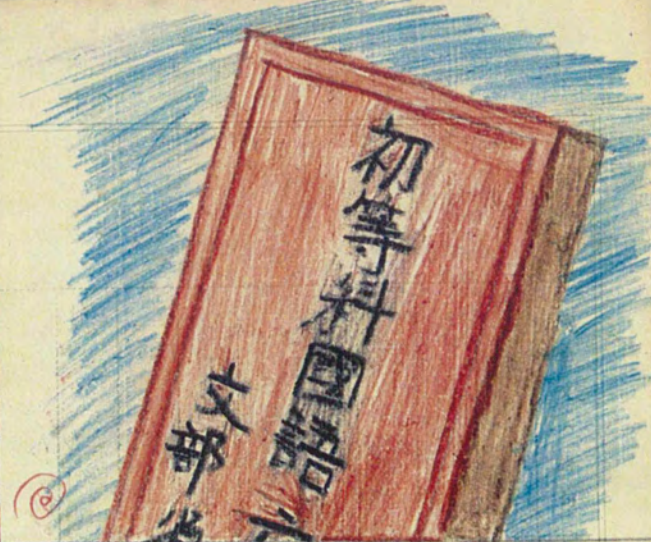 初等科國語六
文部省